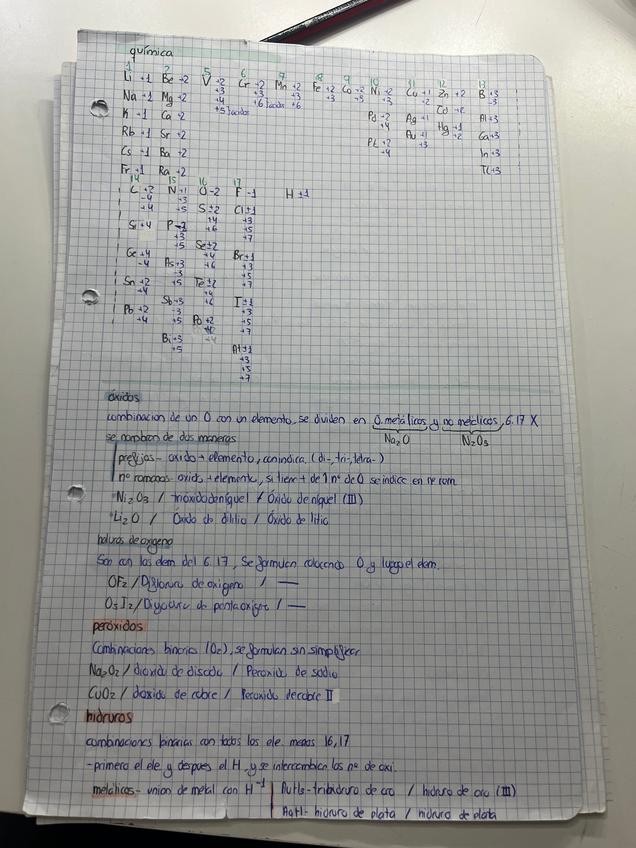 química
1 2 5 6 7 8 9 10 11 12 13
Li +1 Be +2 V +2 Cr +2 Mn +2 Fe +2 Co +2 Ni +2 Cu +1 Zn +2 B +3
+3 +3 +3 +3 +3 +3 +2 -3
Na +1 Mg +2 +4 +6 }acidos +6 Cd +2
+5 }acidos Pd +2 Ag +1 Al +3
K +1 Ca +2 +4 Hg +1
Au +1 +2 Ga +3
Rb +1 Sr +2 Pt +2 +3
+4 In +3
Cs +1 Ba +2
Tl +3
Fr +1 Ra +2
14 15 16 17
C +2 N +1 O -2 F -1 H ±1
-4 +3
+4 +5 S ±2 Cl ±1
+4 +3
Si +4 +3 +6 +5
+5 +7
Se ±2
Ge +4 +4 Br ±1
-4 As +3 +6 +3
-3 +5
Sn +2 +5 Te ±2 +7
+4 +4
Sb +3 +6 I ±1
Pb +2 -3 +3
+4 +5 Po +2 +5
+7
Bi +3 +4
+5 At ±1
+3
+5
+7
óxidos
combinacion de un O con un elemento, se dividen en O. metálicos y no metálicos, G.17 X
se nombran de dos maneras Na₂O N₂O₃
prefijos - oxido + elemento, con indica. (di-, tri-, tetra-)
nº romanos oxido + elemento, si tiene + de 1 nº de O se indica en nº rom.
Ni₂O₃ / trioxido de niquel / Óxido de niquel (III)
Li₂O / Óxido de dilitio / Óxido de litio
haluros de oxigeno
Son con los elem del G.17, se formulan colocando O y luego el elem.
OF₂ / Difloruro de oxigeno / —
O₅I₂ / Diyoduro de pentaoxigeno / —
peróxidos
Combinaciones binarias (O₂), se formulan sin simplificar
Na₂O₂ / dioxido de disodio / Peroxido de sodio
CuO₂ / dioxido de cobre / Peroxido de cobre II
hidruros
combinaciones binarias con todos los ele. menos 16,17
-primero el ele y despues el H y se intercambian los nº de oxi.
metálicos - union de metal con H⁻¹ AuH₃ - trihidruro de oro / hidruro de oro (III)
AgH - hidruro de plata / hidruro de plata